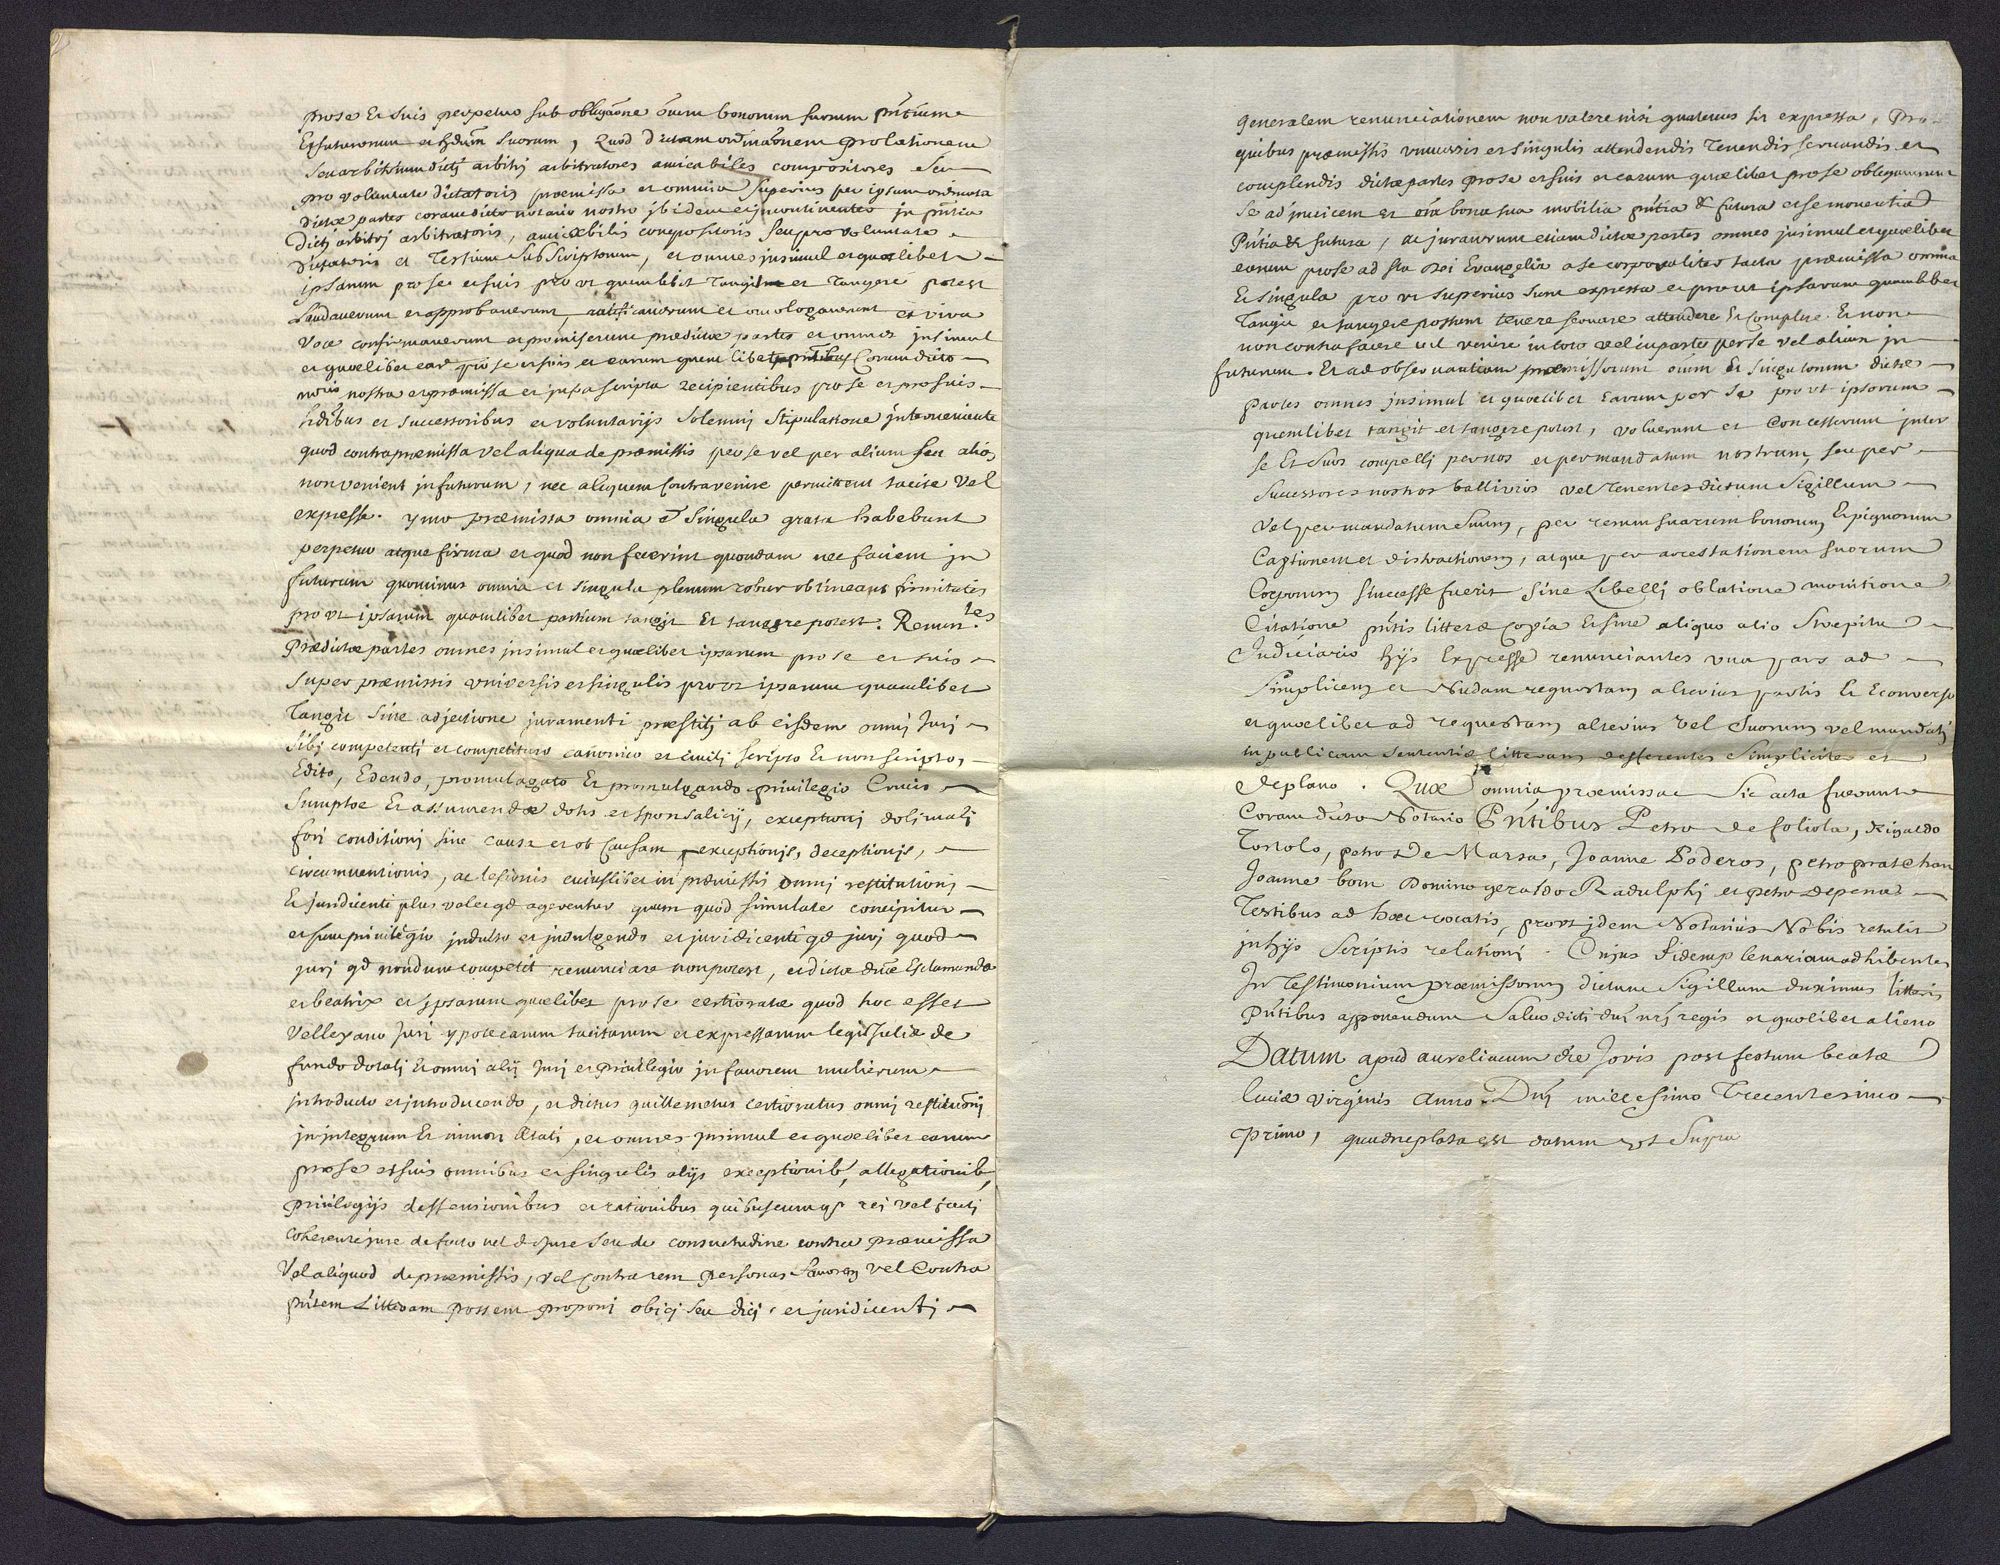 prose Et Suis perpetuo sub obligaõne õium bonorum suorum pñtium
Et futurorum et hỹdum Suorum, Quod dictam ordinaõnem prolationem
seu arbitrium dictj arbitrj arbitratores amicabiles compositores seu
pro voluntate dictatoris præmissa et omnia superius per ipsum ordinata
Dictæ partes coram dicto notario nostro jbidem et jncontinenter jn pñtia
Dictj arbitrj arbitratoris, amicabilis compositoris seu pro voluntate
Dictatoris et Testium subscriptorum, et omnes jnsimul et quælibet
ipsarum pro se et suis pro vt quemlibet Tangit et Tangere potest
Laudaverunt et approbaverunt, ratificaverunt et omologaverunt et viva
Voce confirmaverunt et promiserunt prædictæ partes et omnes jnsimul
et quælibet ear pro se et suis et earum quemlibet pñtibus Coram dicto
norio nostro et præmissa et jnfra scripta recipientibus pro se et pro suis
hdibus et successoribus et voluntarijs solemnj stipulatione jnterveniente
quod contra præmissa vel aliqua de præmissis per se vel per alium seu alios
non venient jn futurum, nec aliquem Contravenire permittent tacite vel
expresse. ymo præmissa omnia & singula grata habebunt
perpetuo atque firma et quod non fecerint quondam nec facient jn
futurum quominus omnia et singula plenum robur obtineant firmitatis
pro vt ipsarum quamlibet partium tangit Et tangere potest. Renun.tes
Prædictæ partes omnes jnsimul et quælibet ipsarum pro se et suis
super præmissis vniversis et singulis pro vt ipsarum quamlibet
Tangit sine adjectione juramenti præstitj ab eisdem omnj Jurj
sibj competentj et competituro canonico et civilj scripto Et non scripto,
Edito, Edendo, promulagato Et promulgando privilegio Crucis
sumptæ Et assumendæ dotis et sponsalicij, exceptionj dolj malj
forj conditionj sine causa et ob Causam, exceptionjs, deceptionjs,
circumventionis, ac lesionis cuiuslibet in præmissis omnj restitutionj
Et jurdicentj plus valet qd ageretur quam quod simulate concipitur
et sine privilegio jndulto et jndulgendo et jurj dicentj qd jurj quod
jurj qd nondum competit renunciare non potest, et dictæ dnæ Esclamonda
et beatrix et ipsarum quælibet pro se certioratæ quod hoc esset
Velleyano Jurj ypotecarum tacitarum et expressarum legi Juliæ de
fundo dotalj et omnj alij Jurj et privilegio jn favorem mulierum
jntroducto et jntroducendo, et dictus guillemetus certioratus omnj restitutionj
jn jntegrum Et minorj Ætati, et omnes jnsimul et quælibet earum
pro se et suis omnibus et singulis alijs exceptionib, allegationib,
privilegijs deffensionibus et rationibus quibuscumq rei vel factj
coherente jure de facto vel de Jure seu de consuetudine contra præmissa
Vel aliquod de præmissis, vel contra rem personas favorem vel Contra
pñtem Litteram possent proponj objcj seu dicj, et juridicentj
generalem renunciationem non valere nisi quatenus sit expressa, Pro
quibus præmissis vniversis et singulis attendendis Tenendis servandis et
complendis dictæ partes pro se et suis et earum quælibet pro se obligaverunt
se ad jnvicem et oia bona sua mobilia pñtia & futura et se moventia
Pñtia & futura, ac juraverunt etiam dictæ partes omnes jnsimul et quælibet
earum pro se ad sta Dei Evangelia a se corporaliter tacta præmissa omnia
Et singula pro vt superius sunt expressa et pro vt ipsarum quamlibet
Tangit et tangere possunt tenere servare attendere Et Complere. Et non
non contra facere vel venire in toto vel in parte per se vel alium jn
futurum. Et ad observantiam præmissorum oium Et singulorum dictæ
Partes omnes jnsimul et quælibet Earum per se pro vt ipsorum
quemlibet tangit et tangere potest, voluerunt et Concesserunt jnter
se Et suos compellj per nos et per mandatum nostrum, seu per
Successores nostros ballivios vel Tenentes dictum Sigillum
Vel per mandatum suum, per rerum suarum bonorum Et pignorum
Captionem et distractionem, atque per arrestationem suorum
Corporum sinecesse fuerit sine Libellj oblatione monitione
Citatione pñtis litteræ Copia Et sine aliquo alio Strepitu
Judiciario hijs Expresse renunciantes vna pars ad
simplicem et Nudam requestam alterius partis Et Econverso
et quælibet ad requestam alterius vel suorum vel mandatj
in publicam sententiæ litteram defferentes simpliciter et
de plano. Quæ omnia præmissa Sic acta fuerunt
Coram dicto Notario Pñtibus Petro de foliola, Rigaldo
Tortolo, petro De Marsa, Joanne Poderos, petro pratchan
Joanne born Domino geraldo Radulphj et petro Depena
Testibus ad hoc vocatis, pro vt jdem Notarius Nobis retulit
jn hijs scriptis relationj. Cujus fidem plenariam adhibentes
In Testimonium præmissorum dictum Sigillum duximus litteris
Pñtibus apponendum Salvo dicti dnj nrj regis et quolibet alieno
Datum apud aureliacum die Jovis post festum beatæ
luciæ virginis Anno Dnj millesimo Trecentesimo
Primo, quadruplata est datum vt Supra